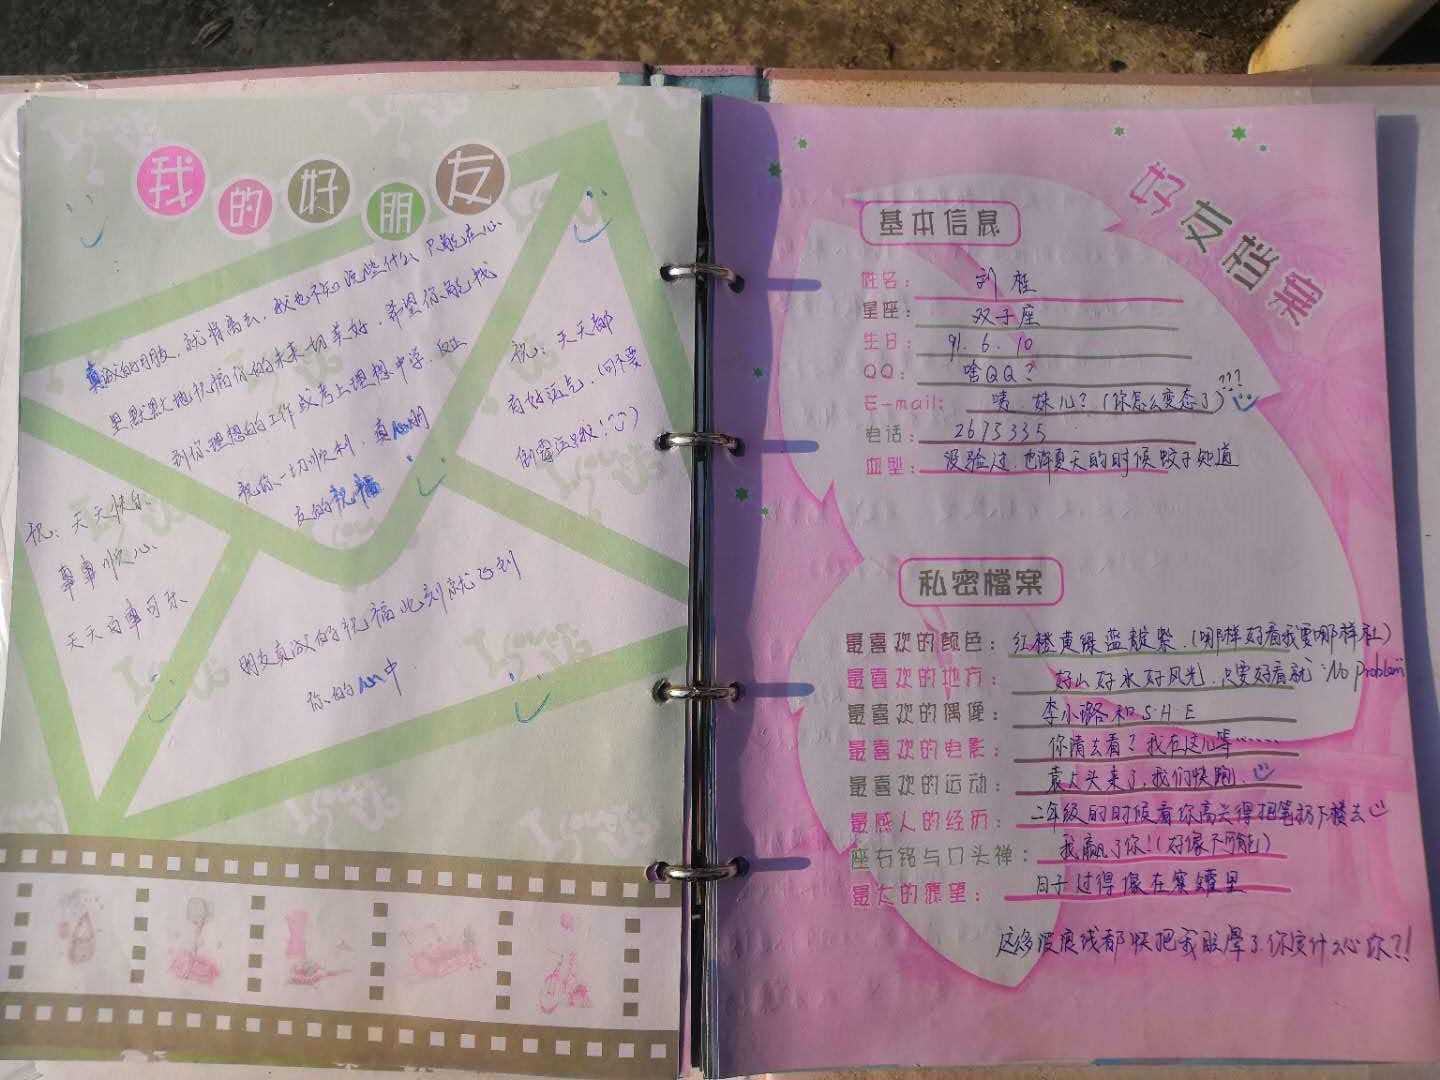 我的好朋友
真诚的朋友,就将离去,我也不知说些什么 只能在心
里默默地祝福你的未来一切美好,希望你能找
到你理想的工作或考上理想中学,反正
祝你一切顺利,真心朋
友的祝福
祝:天天都
有好运气,(可不要
倒霉运哦!)
祝:天天快乐
事事顺心
天天百事可乐
朋友真诚的祝福此刻就飞到
你的心中
好友档案
基本信息
姓名: 刘
星座: 双子座
生日: 91.6.10
QQ: 啥QQ?
E-mail: 咦.妹儿?(你怎么变态了)???
电话: 2695335
血型: 没验过.也许夏天的时候蚊子知道
私密檔案
最喜欢的颜色: 红橙黄绿蓝靛紫.(哪样好看我要哪样社)
最喜欢的地方: 好山好水好风光.只要好看就 No problem
最喜欢的偶像: 李小璐和S·H·E
最喜欢的电影: 你请去看?我在这儿等……
最喜欢的运动: 袁大头来了,我们快跑.
最感人的经历: 二年级的时候看你高兴得把笔扔下楼去
座右铭与口头禅: 我赢了你!(好像不可能)
最大的愿望: 日子过得像在蜜罐里
这多波浪线都快把我敢晕了你安什么心你?!